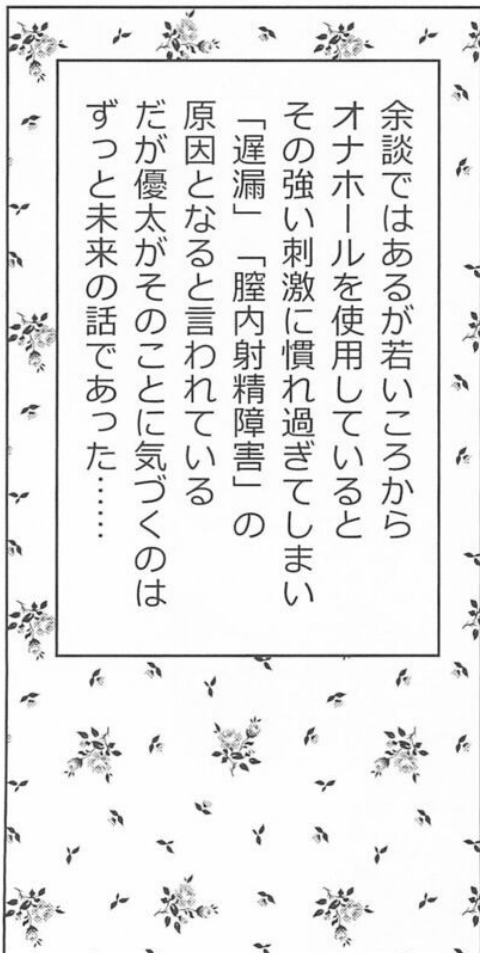 余談ではあるが若いころから
オナホールを使用していると
その強い刺激に慣れ過ぎてしまい
「遅漏」「膣内射精障害」の
原因となると言われている
だが優太がそのことに気づくのは
ずっと未来の話であった……